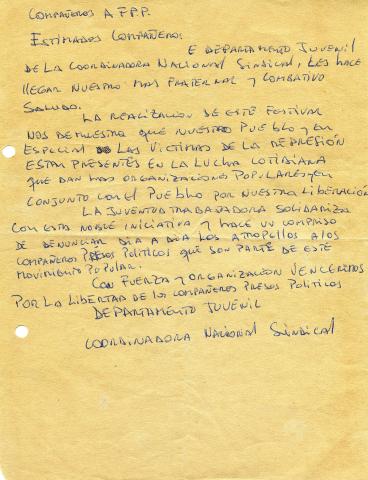 COMPAÑEROS A F.P.P.
ESTIMADOS COMPAÑEROS
E DEPARTAMENTO JUVENIL
DE LA COORDINADORA NACIONAL SINDICAL, LES HACE
LLEGAR NUESTRO MAS FRATERNAL Y COMBATIVO
SALUDO.
LA REALIZACION DE ESTE FESTIVAL
NOS DEMUESTRA QUE NUESTRO PUEBLO Y EN
ESPECIAL LAS VICTIMAS DE LA REPRESIÓN
ESTAN PRESENTES EN LA LUCHA COTIDIANA
QUE DAN LAS ORGANIZACIONES POPULARES Y EN
CONJUNTO CON EL PUEBLO POR NUESTRA LIBERACIÓN
LA JUVENTUD TRABAJADORA SOLIDARIZA
CON ESTA NOBLE INICIATIVA Y HACE UN COMPROMISO
DE DENUNCIAR DIA A DIA LOS ATROPELLOS A LOS
COMPAÑEROS PRESOS POLITICOS QUE SON PARTE DE ESTE
MOVIMIENTO POPULAR.
CON FUERZA Y ORGANIZACION VENCEREMOS
POR LA LIBERTAD DE LOS COMPAÑEROS PRESOS POLITICOS
DEPARTAMENTO JUVENIL
COORDINADORA NACIONAL SINDICAL